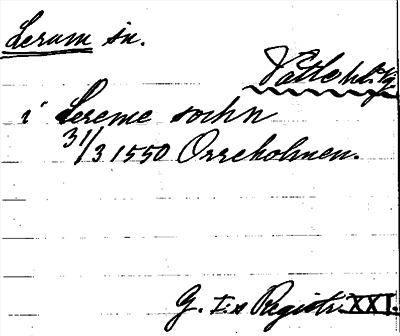 Lerum sn.
Vättle hd.
i Lereme sochn
31/3 1550 Orreholmen.
G. I:s Registr. XXI.